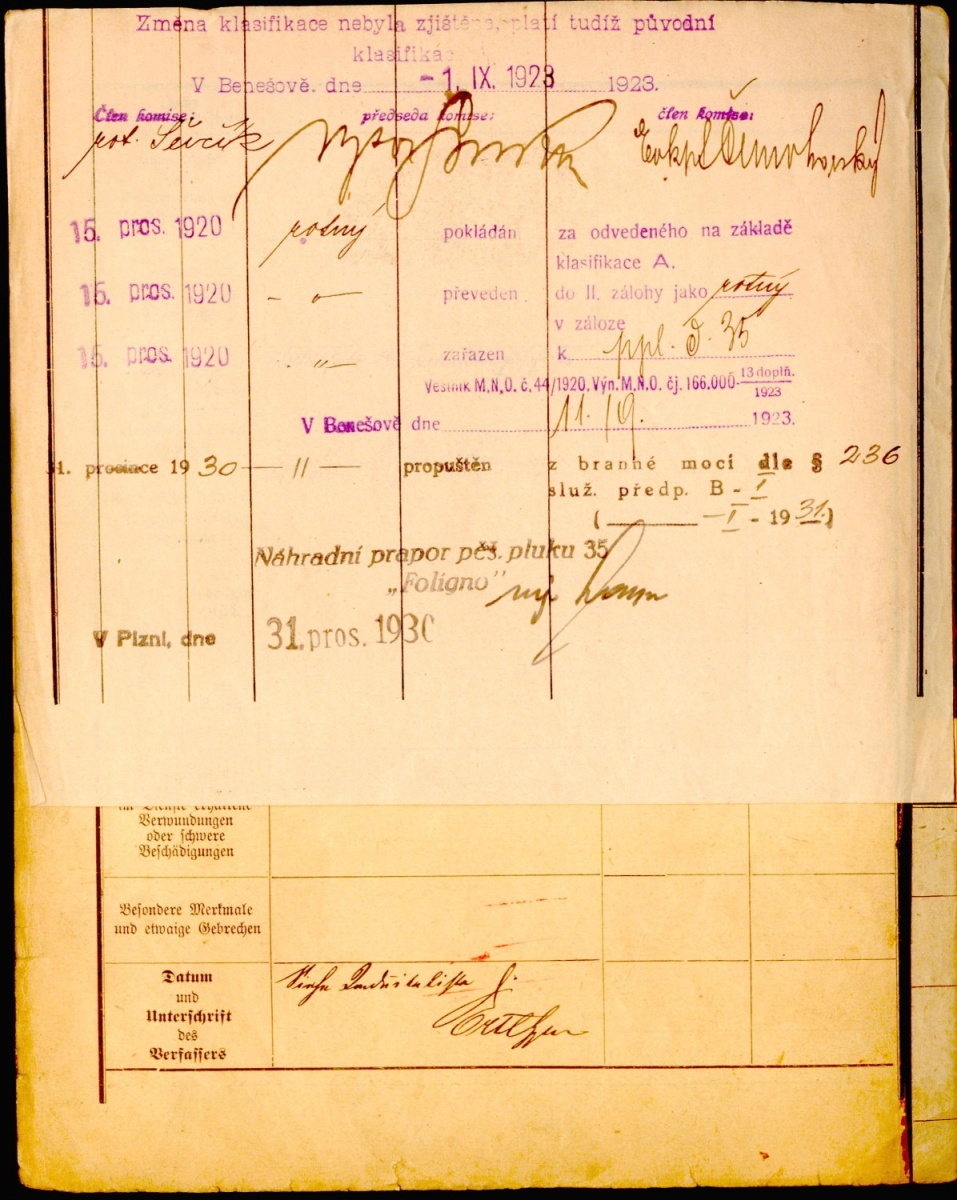 Změna klasifikace nebyla zjištěna, platí tudíž původní
klasifikác
V Benešově. dne - 1. IX. 1923 1923.
Člen komise: předseda komise: člen komise:
rot. Ševčík
15. pros. 1920 rotný pokládán za odvedeného na základě
klasifikace A.
15. pros. 1920 - " - převeden do II. zálohy jako rotný
v záloze
15. pros. 1920 - " - zařazen k ppl. č. 35
Věstník M.N.O. č. 44/1920. Výn. M.N.O. čj. 166.000-13 doplň./1923
V Benešově dne 11./9. 1923.
31. prosince 1930 — " — propuštěn z branné moci dle § 236
služ. předp. B - I
( — I - 1931.)
Náhradní prapor pěš. pluku 35
„Foligno"
V Plzni, dne 31. pros. 1930
im Dienste erhaltene
Verwundungen
oder schwere
Beschädigungen
Besondere Merkmale
und etwaige Gebrechen
Datum
und
Unterschrift
des
Verfassers
Siehe